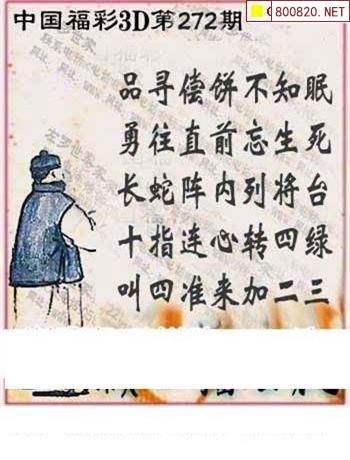 800820.NET
中国福彩3D第272期
品寻偿饼不知眠
勇往直前忘生死
长蛇阵内列将台
十指连心转四绿
叫四准来加二三